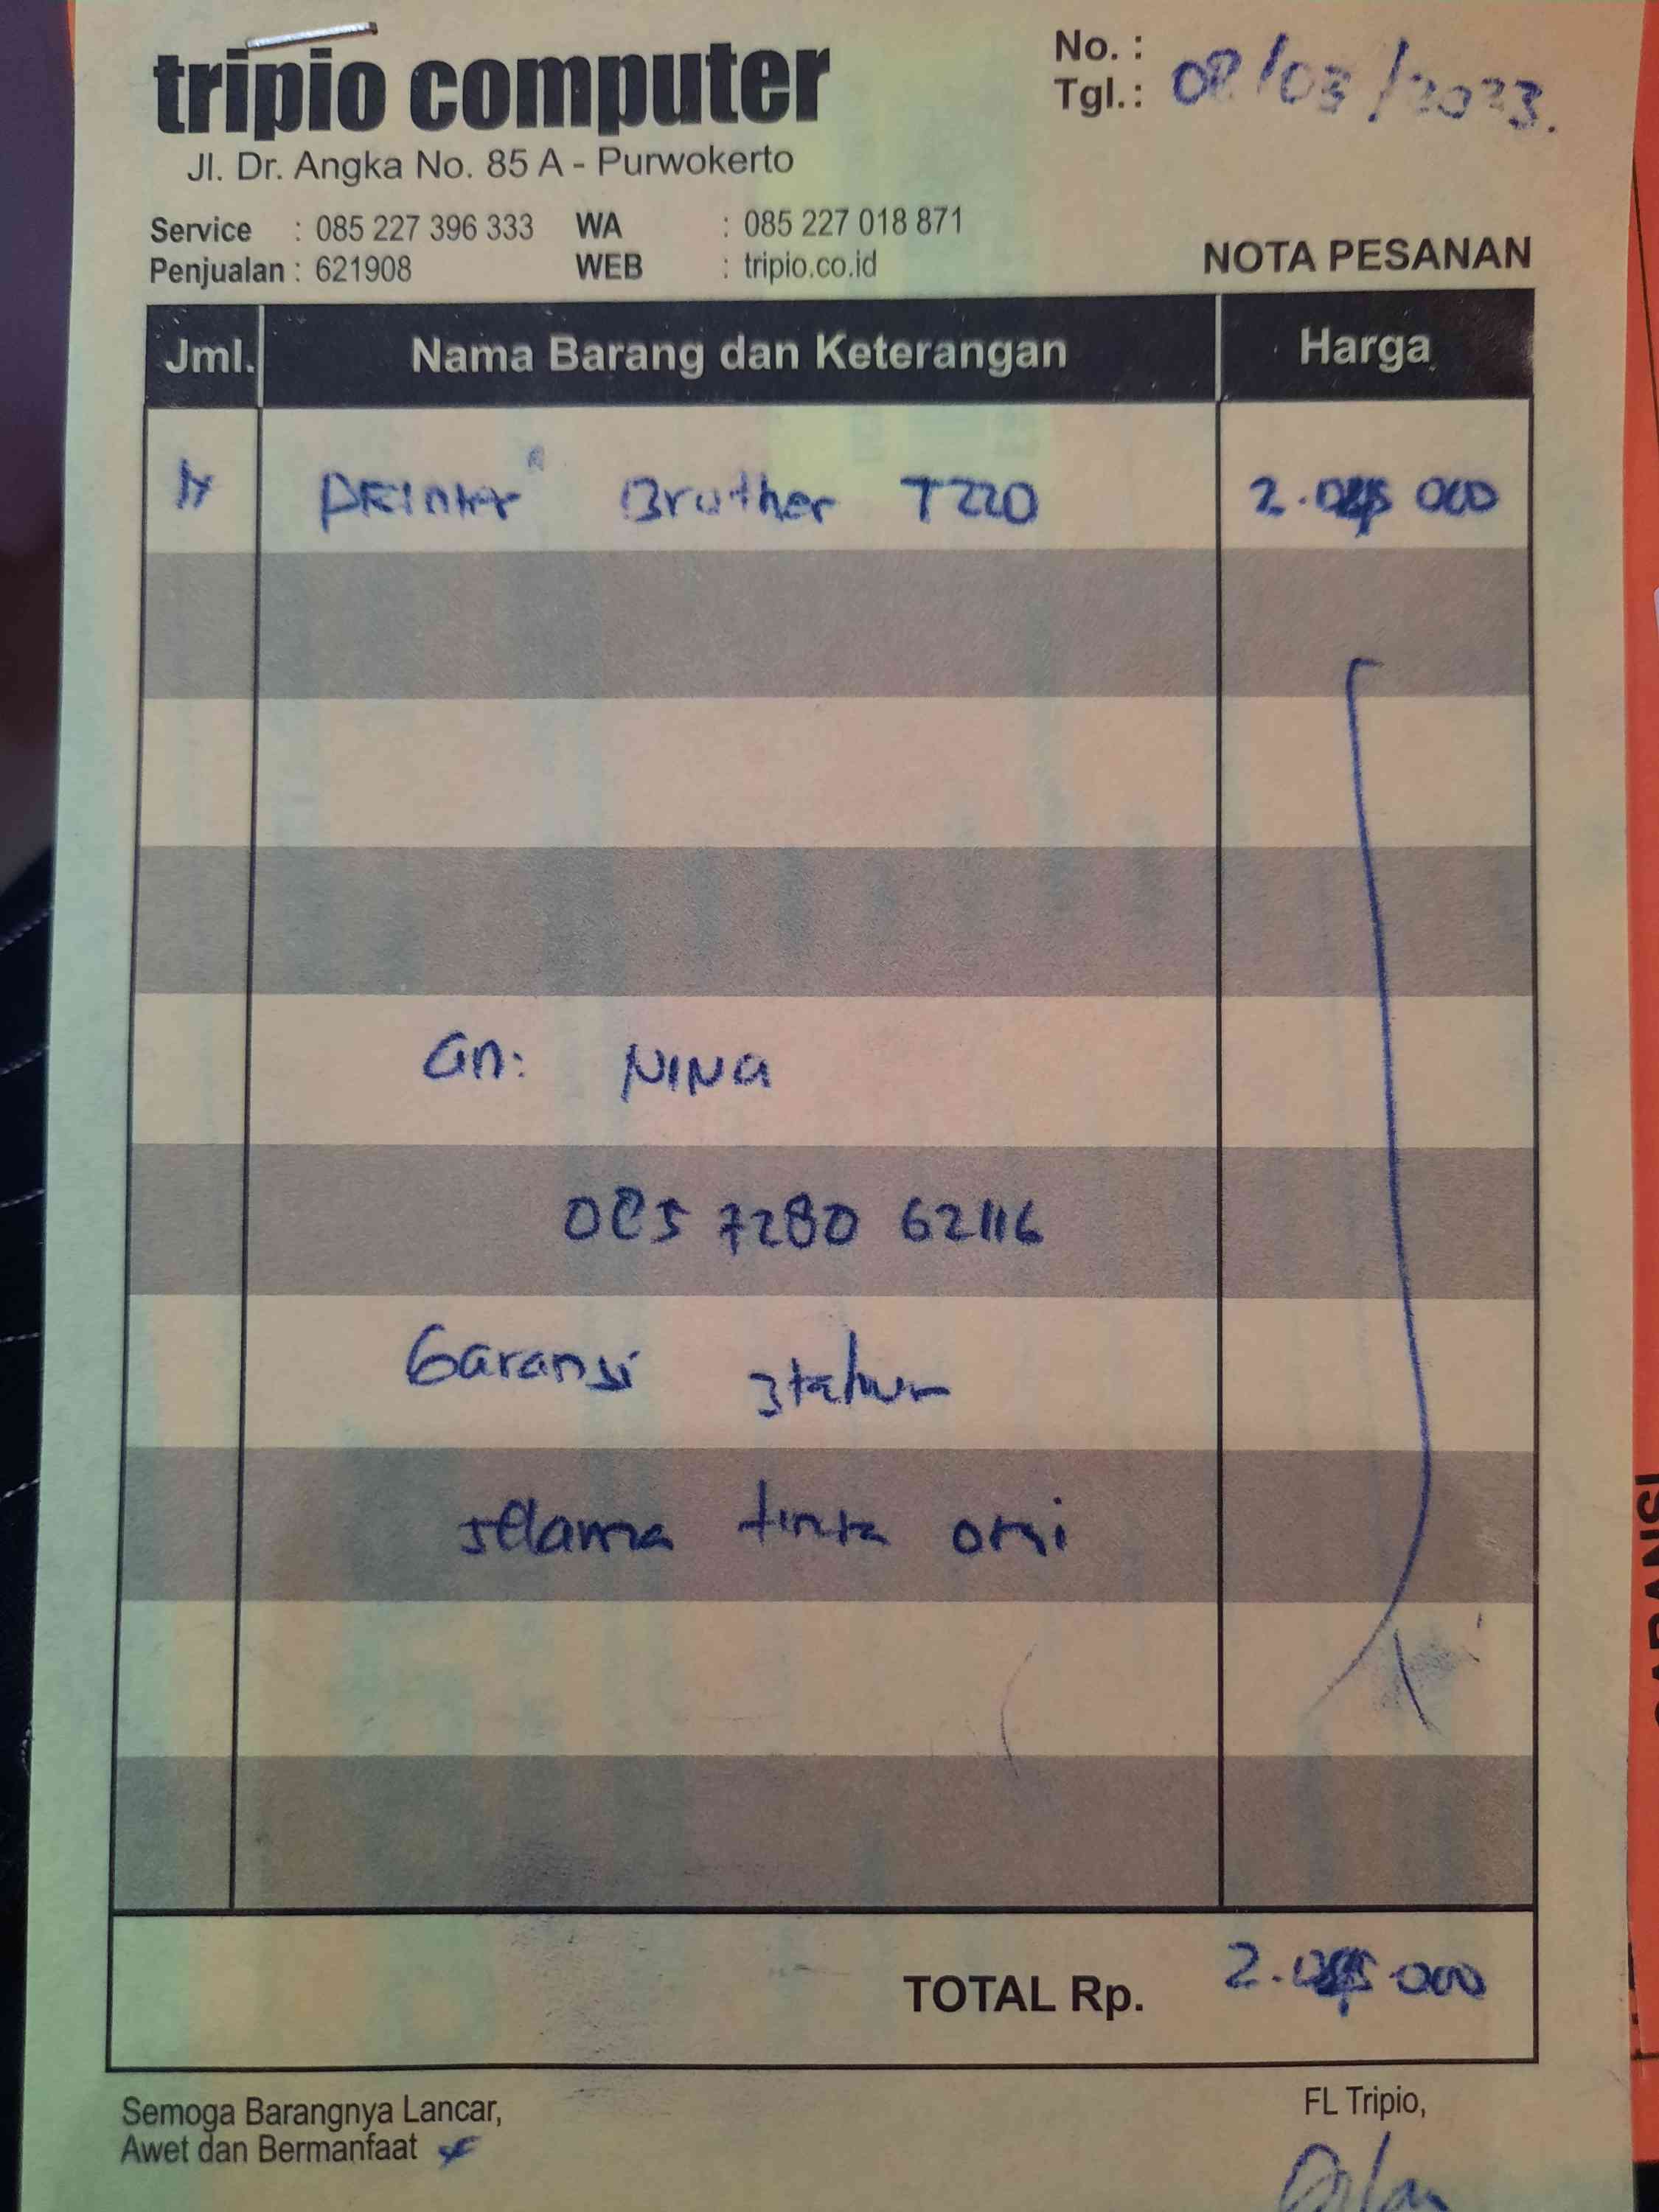 tripio computer
Jl. Dr. Angka No. 85 A - Purwokerto
No. :
Tgl. : 08/03/2023.
Service : 085 227 396 333 WA : 085 227 018 871
Penjualan : 621908 WEB : tripio.co.id
NOTA PESANAN
Jml. Nama Barang dan Keterangan Harga
Printer Brother T220
an: NINA
085 7280 62116
Garansi 3 tahun
selama tinta ori
TOTAL Rp.
Semoga Barangnya Lancar,
Awet dan Bermanfaat
FL Tripio,
GARANSI